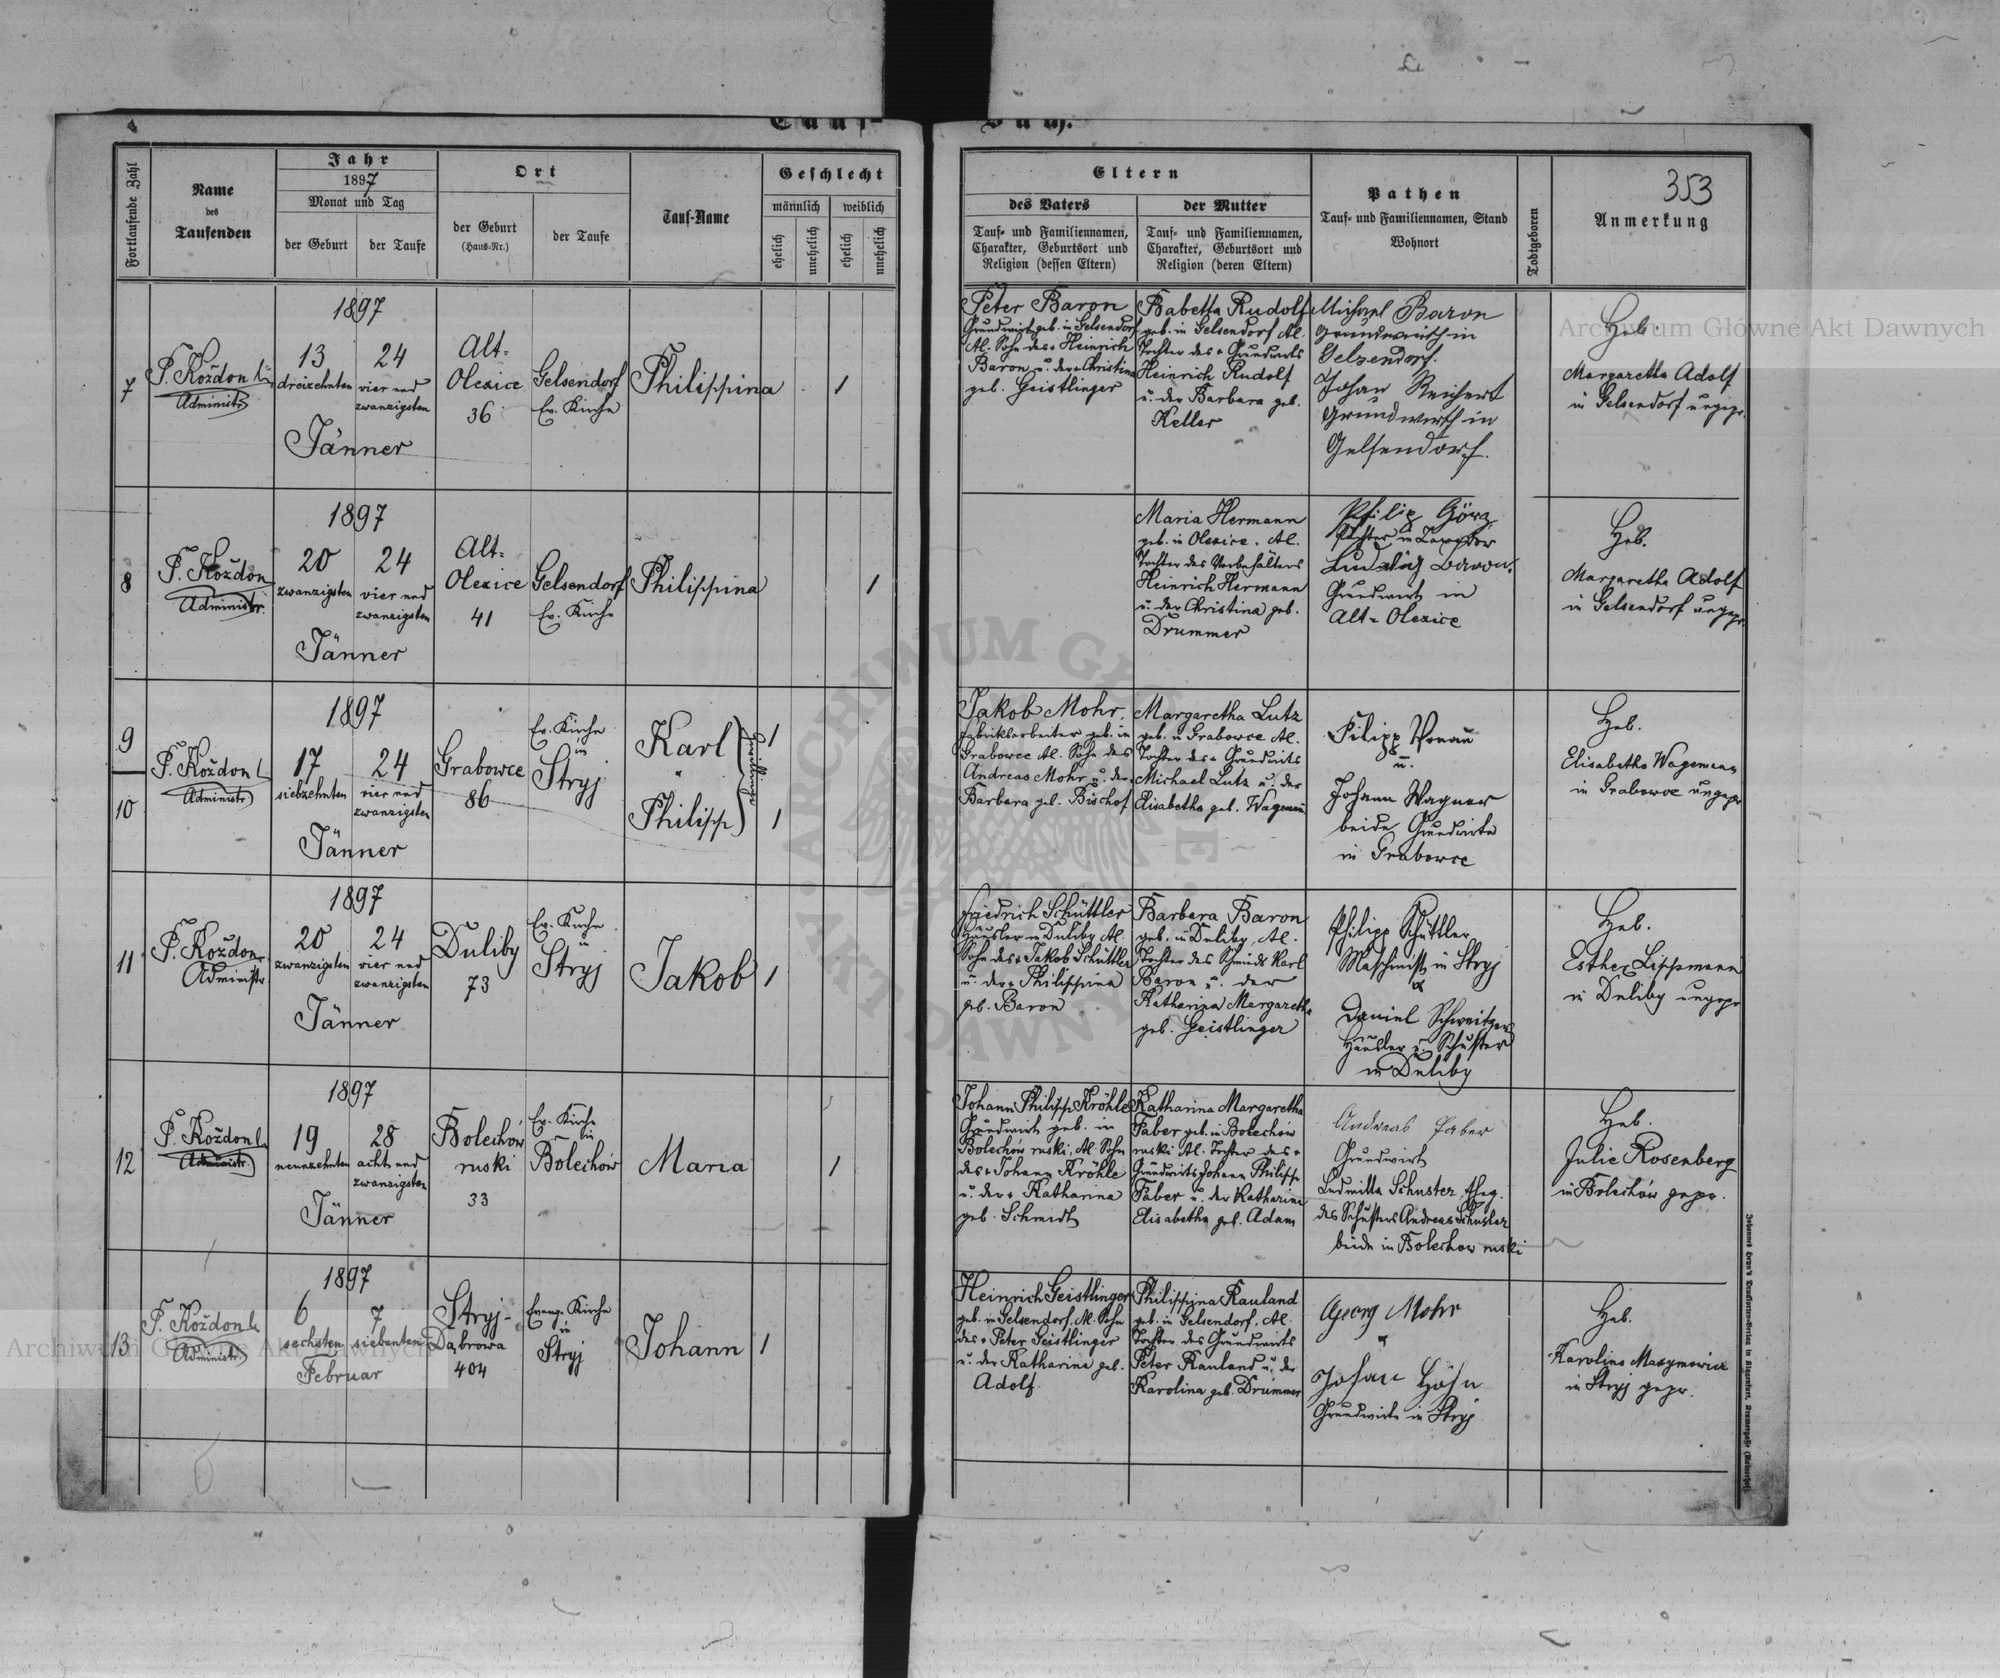 Tauf-
Buch.
Fortlaufende Zahl
Name
des
Taufenden
Jahr
1897
Monat und Tag
der Geburt
der Taufe
Ort
der Geburt
(Haus-Nr.)
der Taufe
Tauf-Name
Geschlecht
männlich
weiblich
ehelich
unehelich
ehelich
unehelich
Eltern
des Vaters
Tauf- und Familiennamen,
Charakter, Geburtsort und
Religion (dessen Eltern)
der Mutter
Tauf- und Familiennamen,
Charakter, Geburtsort und
Religion (deren Eltern)
Pathen
Tauf- und Familiennamen, Stand
Wohnort
Todtgeboren
353
Anmerkung
7
P. Koždon
Administr.
1897
13
dreizehnten
24
vier und
zwanzigsten
Jänner
Alt-
Olexice
36
Gelsendorf
Ev. Kirche
Philippina
1
Peter Baron
Grundwirt geb. in Gelsendorf
Al. Sohn des + Heinrich
Baron u. der + Christina
geb. Geistlinger
Babetta Rudolf
geb. in Gelsendorf Al.
Tochter des + Grundwirts
Heinrich Rudolf
u. der Barbara geb.
Keller
Michael Baron
Grundwirth in
Gelzendorf.
Johan Reichert
Grundwirth in
Gelsendorf.
Heb.
Margaretha Adolf
in Gelsendorf ungepr.
8
P. Koždon
Administr.
1897
20
zwanzigsten
24
vier und
zwanzigsten
Jänner
Alt-
Olexice
41
Gelsendorf
Ev. Kirche
Philippina
1
Maria Hermann
geb. in Olexice. Al.
Tochter des Vorbehälters
Heinrich Hermann
u. der Christina geb.
Drummer
Philip Görz
Ludwig Baron.
Grundwirt in
Alt-Olexice
Heb.
Margaretha Adolf
in Gelsendorf ungepr.
9
10
P. Koždon
Administr.
1897
17
siebzehnten
24
vier und
zwanzigsten
Jänner
Grabowce
86
Ev. Kirche
in
Stryj
Karl
Philipp
Zwillinge
1
1
Jakob Mohr,
Fabriksarbeiter geb. in
Grabowce Al. Sohn des
Andreas Mohr u. der
Barbara geb. Bischof
Margaretha Lutz
geb. in Grabowce Al.
Tochter des + Grundwirts
Michael Lutz u. der
Elisabetha geb. Wagemann
Filipp
u.
Johann Wagner
beide Grundwirte
in Grabowce
Heb.
Elisabetha Wagemann
in Grabowce ungepr
11
P. Koždon
Administr.
1897
20
zwanzigsten
24
vier und
zwanzigsten
Jänner
Duliby
73
Ev. Kirche
in
Stryj
Jakob
1
Friedrich Schüttler
Häusler in Duliby Al.
Sohn des + Jakob Schüttler
u. der + Philippina
geb. Baron
Barbara Baron
geb. in Duliby, Al.
Tochter des Schmieds Karl
Baron u. der
Katharina Margaretha
geb. Geistlinger
Philipp Schüttler
Maschinist in Stryj
Daniel Schweitzer
Häusler u. Schuster
in Duliby
Heb.
Esther Lippmann
in Duliby ungepr
12
P. Koždon
Administr.
1897
19
neunzehnten
28
acht und
zwanzigsten
Jänner
Bolechów
ruski
33
Ev. Kirche
in
Bolechów
Maria
1
Johann Philipp Kröhle
Grundwirt geb. in
Bolechów ruski, Al. Sohn
des + Johann Kröhle
u. der + Katharina
geb. Schmidt
Katharina Margaretha
Faber geb. in Bolechów
ruski Al. Tochter des +
Grundwirts Johann Philipp
Faber u. der Katharina
Elisabetha geb. Adam
Andreas Faber
Grundwirt
Ludmilla Schuster, Eheg.
des Schusters Andreas Schuster
beide in Bolechow ruski
Heb.
Julie Rosenberg
in Bolechów gepr.
13
P. Koždon
Administr.
1897
6
sechsten
7
siebenten
Februar
Stryj-
Dąbrowa
404
Evang. Kirche
in
Stryj
Johann
1
Heinrich Geistlinger
geb. in Gelsendorf, Al. Sohn
des + Peter Geistlinger
u. der Katharina geb.
Adolf.
Philippina Rauland
geb. in Gelsendorf, Al.
Tochter des Grundwirts
Peter Rauland u. der
Karolina geb. Drummer
Georg Mohr
Johann Höhn
Grundwirte in Stryj
Heb.
Karolina Maxymowicz
in Stryj gepr.
Archiwum Główne Akt Dawnych
Archiwum Główne Akt Dawnych
ARCHIWUM GŁÓWNE AKT DAWNYCH